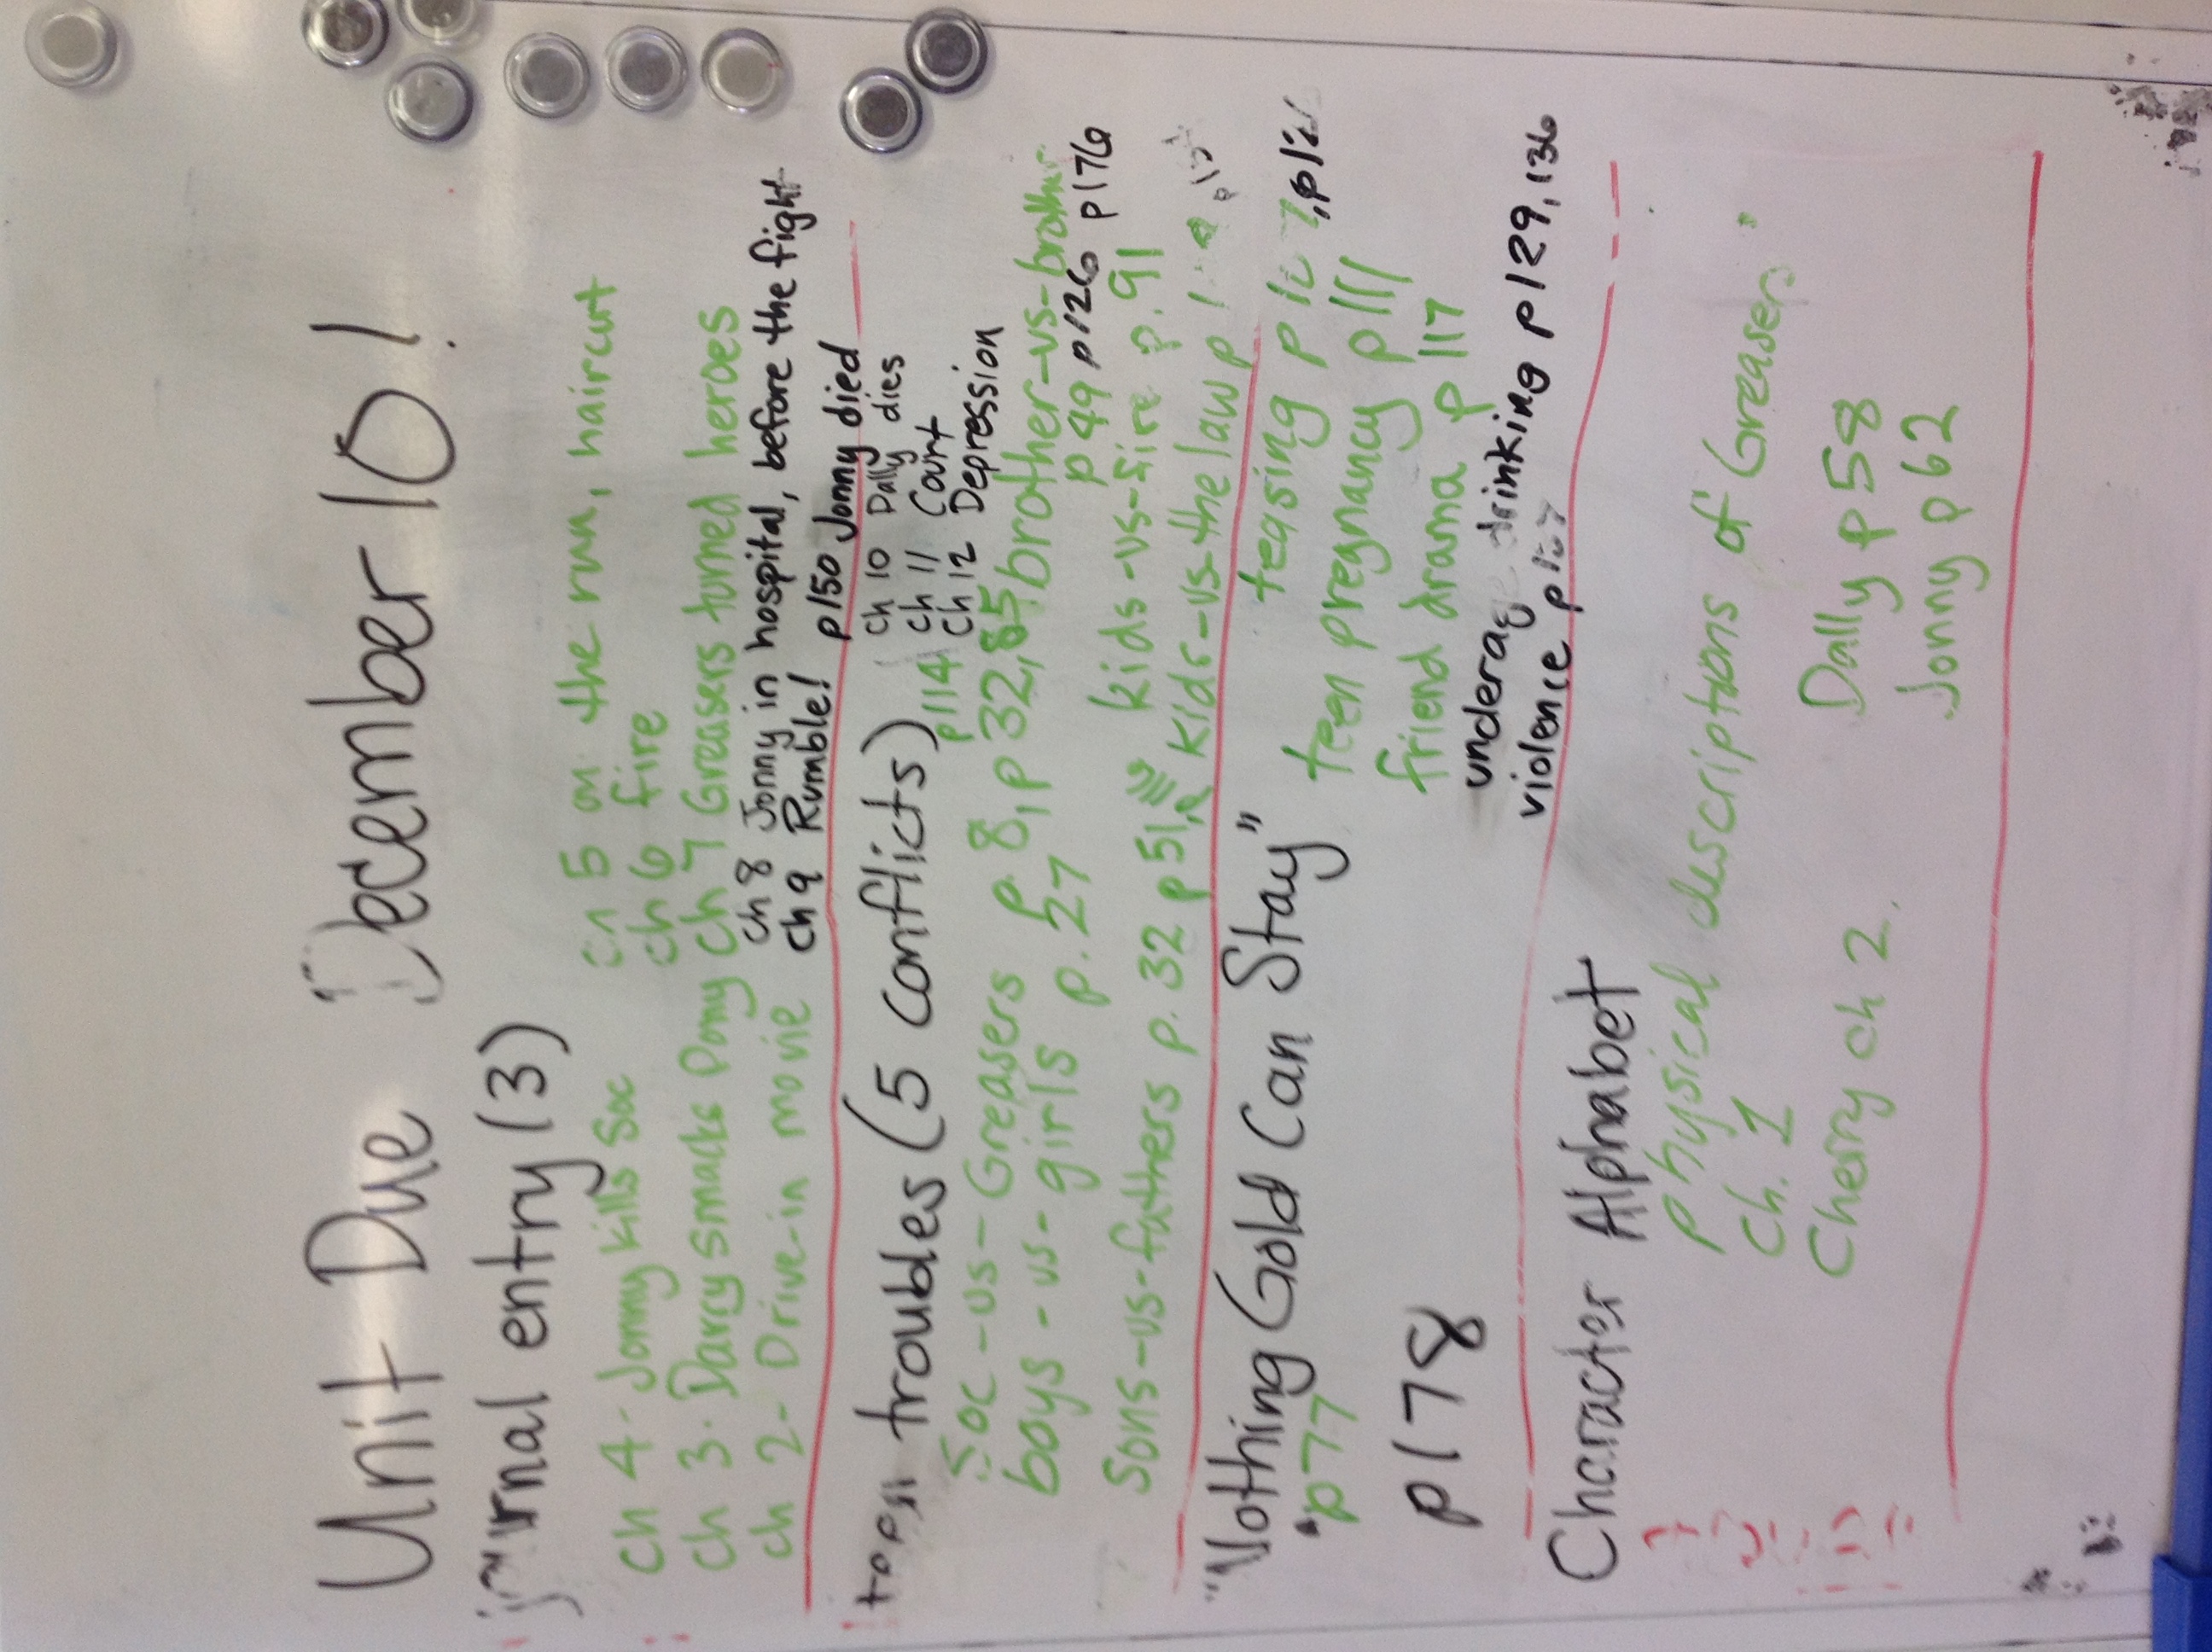 Unit Due December 10!
journal entry (3)
Ch 4 - Jonny kills Soc
Ch 3. Darcy smacks Pony
Ch 2- Drive-in movie
Ch 5 on the run, haircut
Ch 6 fire
Ch 7 Greasers turned heroes
Ch 8 Jonny in hospital, before the fight
Ch 9 Rumble! p150 Jonny died
Ch 10 Dally dies
Ch 11 Court
Ch 12 Depression
teen troubles (5 conflicts)
p114
Soc-vs-Greasers p. 8, p 32, 85
boys-vs-girls p. 27
Sons-vs-fathers p. 32 p 51,
brother-vs-brother
p 49 p126 p176
kids-vs-fire p. 91
kids-vs-the law p
"Nothing Gold Can Stay"
•p77
p178
teasing
teen pregnancy p111
friend drama p 117
underage drinking p129, 136
violence
Character Alphabet
Physical descriptions of Greasers
Ch. 1
Cherry ch 2.
Dally p 58
Jonny p 62